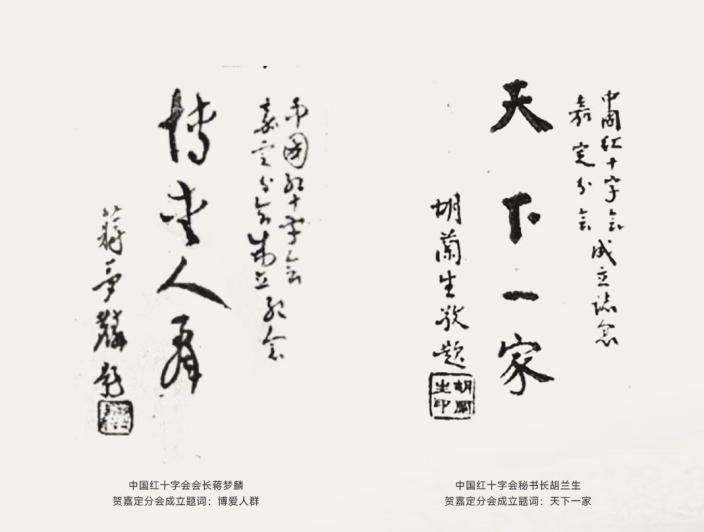 中国红十字会
嘉定分会成立纪念
博爱人群
蒋梦麟题
中国红十字会成立志念
嘉定分会
天下一家
胡兰生敬题
胡兰生印
中国红十字会会长蒋梦麟
贺嘉定分会成立题词：博爱人群
中国红十字会秘书长胡兰生
贺嘉定分会成立题词：天下一家